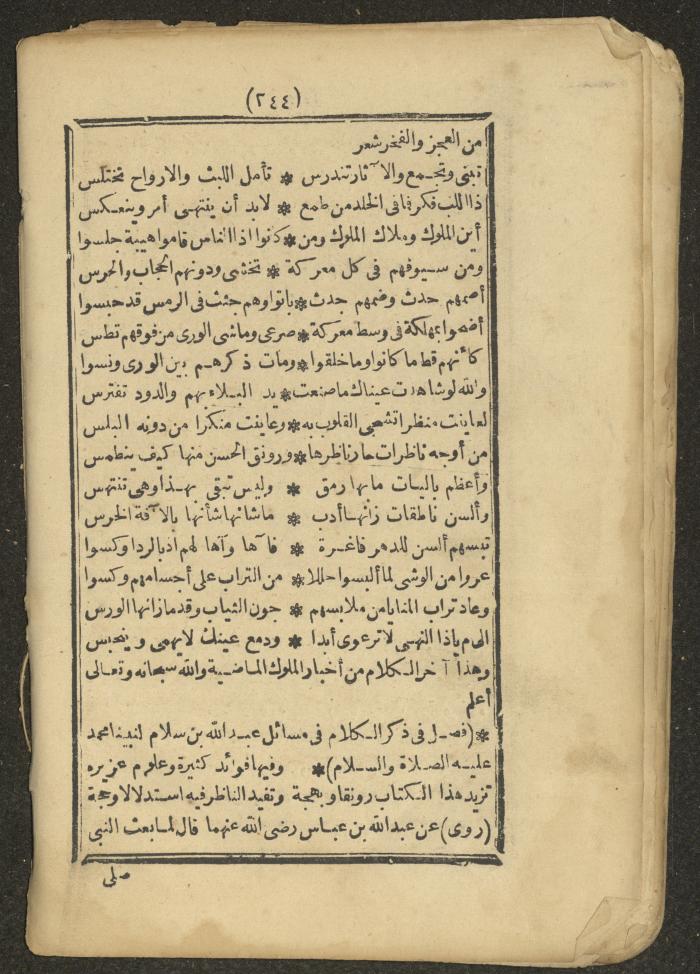 (٢٤٤)
من العجز والفخر شعر
تبنى وتجمع والآثار تندرس * تأمل اللبث والارواح تختلس
ذا اللب فكر فما فى الخلد من طمع * لابد أن ينتهى أمر وينعكس
أين الملوك وملاك الملوك ومن * كانوا اذا الناس قاموا هيبة جلسوا
ومن سيوفهم فى كل معركة * تخشى ودونهم الحجاب والحرس
أصمهم حدث وضمهم جدث * باتوا وهم جثث فى الرمس قد حبسوا
أضحوا بمهلكة فى وسط معركة * صرعى وماشى الورى من فوقهم تطس
كأنهم قط ما كانوا وما خلقوا * ومات ذكرهم بين الورى ونسوا
والله لو شاهدت عيناك ما صنعت * يد البلاء بهم والدود تفترس
لعاينت منظرا تشجى القلوب به * وعاينت منكرا من دونه البلس
من أوجه ناظرات حار ناظرها * ورونق الحسن منها كيف ينطمس
وأعظم باليات مابها رمق * وليس تبقى بهذا وهى تنتهس
وألسن ناطقات زانها أدب * ماشانها شأنها بالآفة الخرس
تبسهم ألسن للدهر فاغرة * فآها وآها لهم اذ بالردا وكسوا
عروا من الوشى لما ألبسوا حللا * من التراب على أجسامهم وكسوا
وعاد تراب المنايا من ملابسهم * جون الثياب وقدما زانها الورس
الام ياذا النهى لا ترعوى أبدا * ودمع عينك لا يهمى وينحبس
وهذا آخر الكلام من أخبار الملوك الماضية والله سبحانه وتعالى
أعلم
*(فصل فى ذكر الكلام فى مسائل عبد الله بن سلام لنبينا محمد
عليه الصلاة والسلام)* وفيها فوائد كثيرة وعلوم غزيره
تزيد هذا الكتاب رونقا وبهجة وتفيد الناظر فيه استدلالا وحجة
(روى) عن عبد الله بن عباس رضى الله عنهما قال لما بعث النبى
صلى